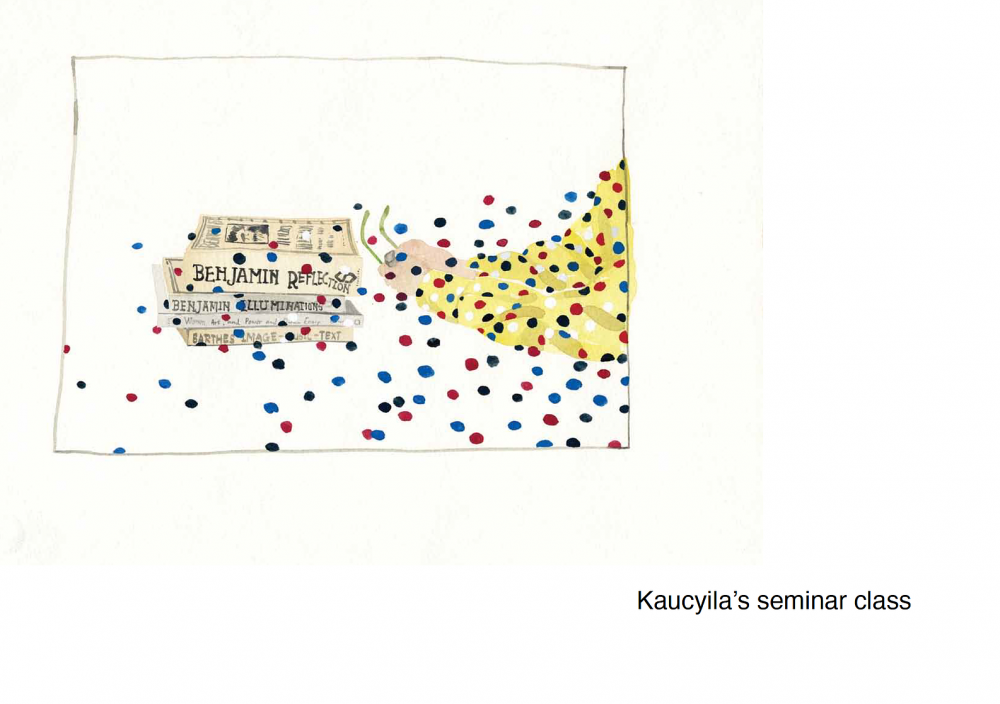 BENJAMIN REFLECTIONS
BENJAMIN ILLUMINATIONS
Women, Art, and Power and
BARTHES IMAGE-MUSIC-TEXT
Kaucyila’s seminar class